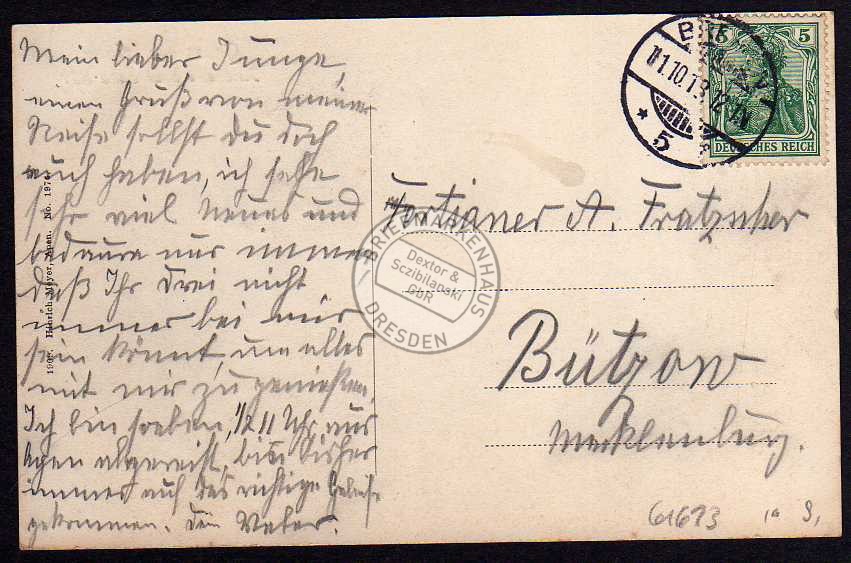 Mein lieber Junge,
einen Gruß von meiner
Reise sollst du doch
auch haben, ich sehe
sehr viel Neues und
bedaure nur immer
daß Ihr drei nicht
immer bei mir
sein könnt, um alles
mit mir zu genießen.
Ich bin soeben, 1/2 11 Uhr aus
abgereist, bisher
immer auf das richtige Geleise
gekommen. Dein Vater.
5 5
DEUTSCHES REICH
11.10.13.12-1N
* 5
Tertianer A. Fratzscher
Bützow
Mecklenburg.
1907. Heinrich Meyer, No. 197
BRIEFMARKENHAUS
Dextor &
Sczibilanski
GbR
DRESDEN
61693